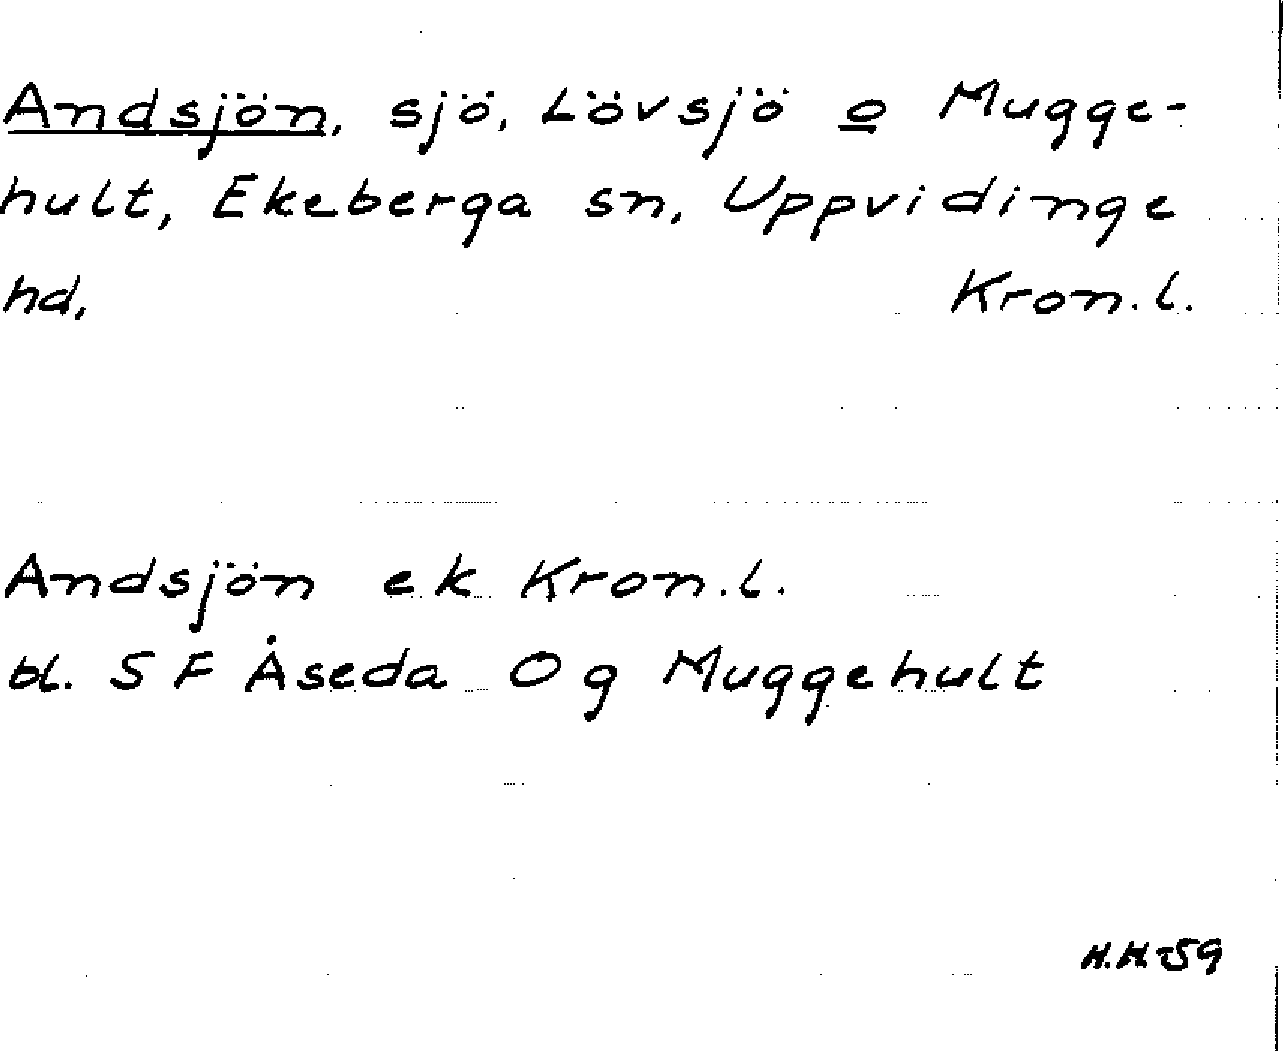 Andsjön, sjö, Lövsjö o Mugge-
hult, Ekeberga sn, Uppvidinge
hd, Kron.l.
Andsjön ek Kron.l.
bl. S F Åseda Og Muggehult
H.H-59